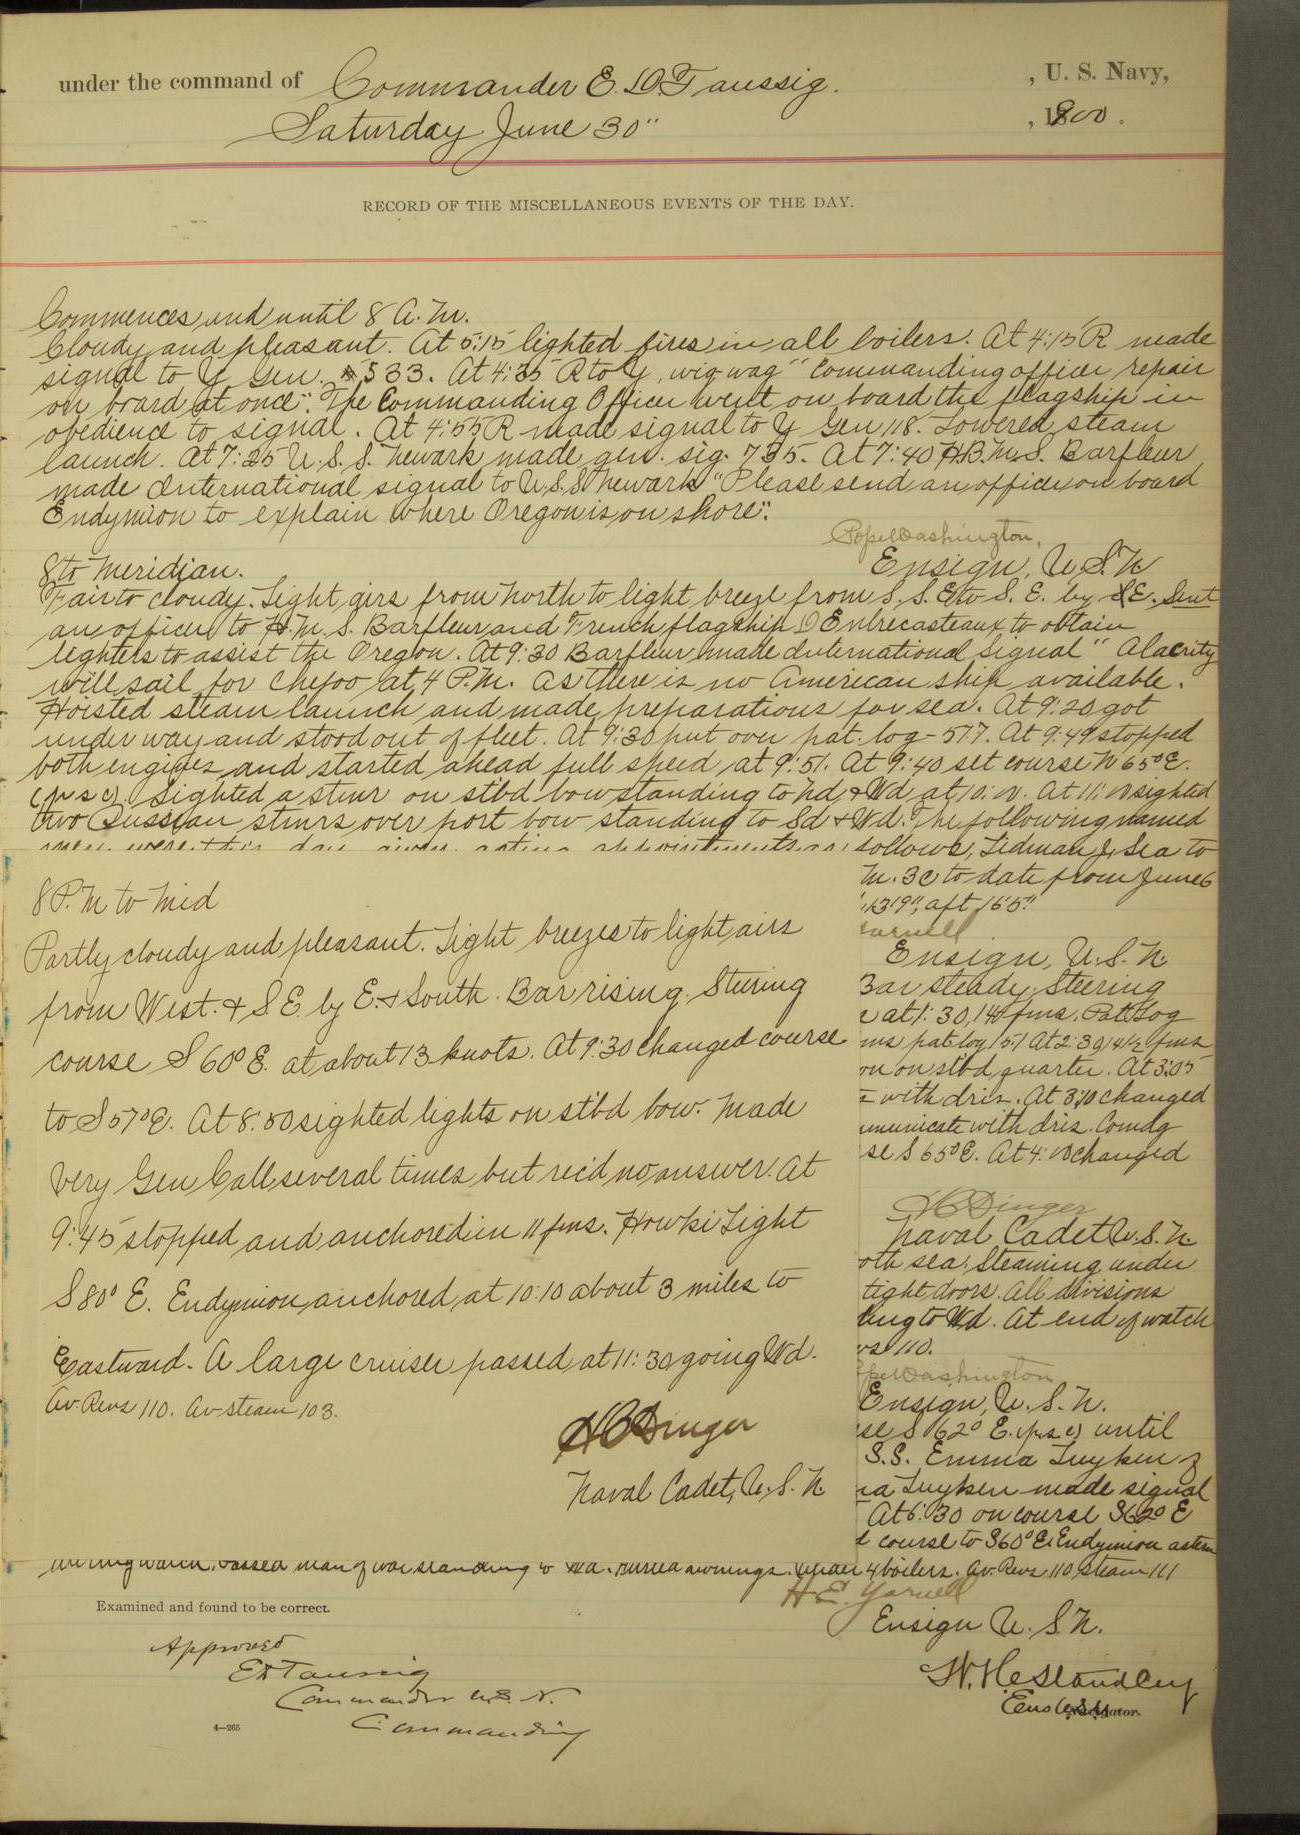 under the command of Commander E. D. Taussig. , U. S. Navy,
Saturday June 30" , 1900.
RECORD OF THE MISCELLANEOUS EVENTS OF THE DAY.
Commences and until 8 A.M.
Cloudy and pleasant. At 5:15 lighted fires in all boilers. At 4:15 R made
signal to Y Gen. 533. At 4:35 R to Y, wig-wag "Commanding officer repair
on board at once". The Commanding Officer went on board the flagship in
obedience to signal. At 4:55 R made signal to Y Gen 118. Lowered steam
launch. At 7:25 U.S.S. Newark made gen. sig. 735. At 7:40 H.B.M.S. Barfleur
made International signal to U.S.S Newark "Please send an officer on board
Endymion to explain where Oregon is on shore".
Pope Washington,
Ensign, U.S.N
8 to Meridian.
Fair to cloudy. Light airs from North to light breeze from S.S.E to S. E. by S.E. Sent
an officer to H.M.S. Barfleur and French flagship D Entrecasteaux to obtain
lighters to assist the Oregon. At 9:30 Barfleur made International Signal "Alacrity
will sail for Chefoo at 4 P.M. as there is no American ship available.
Hoisted steam launch and made preparations for sea. At 9:20 got
under way and stood out of fleet. At 9:30 put over pat. log - 57.7. At 9:49 stopped
both engines and started ahead full speed at 9:51. At 9:40 set course N 65° E.
(p s c). Sighted a stmr on stbd bow standing to Nd + Wd at 10:00. At 11:00 sighted
two Russian stmrs over port bow standing to Sd + Wd. The following named
men were this day given acting appointments as follows, Tidman J, Sea to
M. 3c to date from June 6
13'9", aft 16'5"
Yarnell
Ensign, U.S.N.
8 P.M to Mid
Partly cloudy and pleasant. Light breezes to light airs
from West. + S E by E. + South. Bar rising. Steering
course S 60° E. at about 13 knots. At 9:30 changed course
to S 57° E. At 8:50 sighted lights on stbd bow. Made
Very Gen Call several times but recd no answer. At
9:45 stopped and anchored in 11 fms. Howki Light
S 80° E. Endymion anchored at 10:10 about 3 miles to
Eastward. A large cruiser passed at 11:30 going Wd.
Av. Revs 110. Av steam 103.
H C Dinger
Naval Cadet, U.S.N
Bar steady. Steering
at 1:30, 14 fms. Pat Log
ms pat log 15.1 At 2:30, 14½ fms
on on stbd quarter. At 3:05
with dris. At 3:10 changed
municate with dris. Comdg
se S 65° E. At 4:00 changed
H C Dinger
Naval Cadet U.S.N.
oth sea. Steaming under
tight doors. All divisions
ling to Wd. At end of watch
vs 110.
Pope Washington
Ensign, U.S.N.
se S 62° E. (p.s.c) until
S.S. Emma Luyken
na Luyken made signal
At 6:30 on course S 62° E
d course to S 60° E. Endymion astern
during watch. Passed man of war standing to Wd. Furled awnings. Under 4 boilers. Av. Revs 110, steam 111
H. E. Yarnell
Ensign U.S.N.
Examined and found to be correct.
Approved
E D Taussig
Commander U.S.N.
Commanding
W. H. Standley
Ens U.S.N
Navigator.
4—265